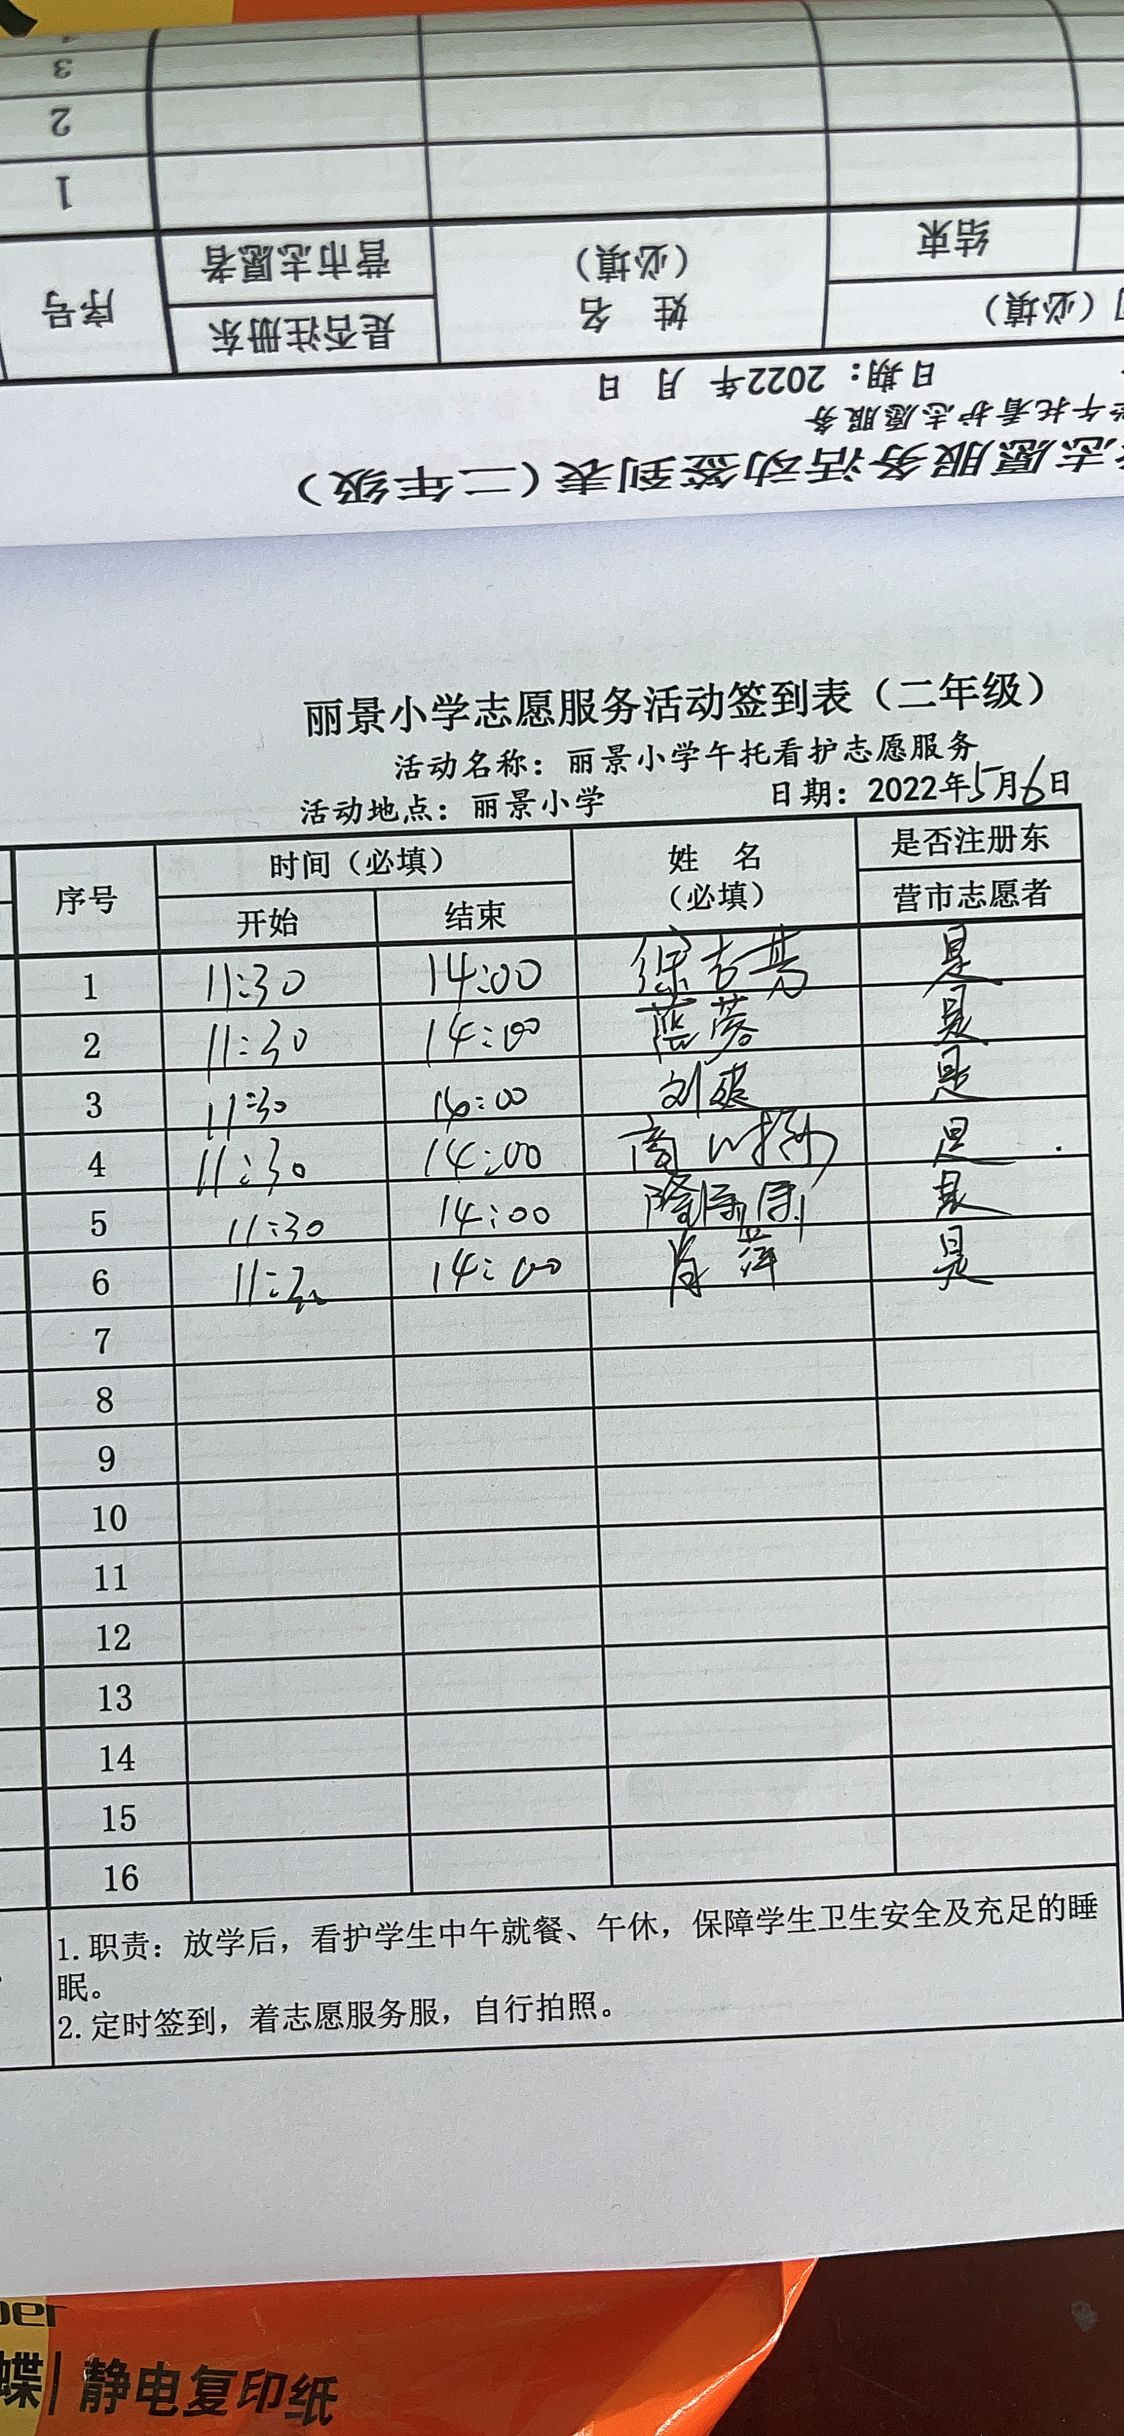 3
2
1
序号
是否注册东
营市志愿者
姓 名
（必填）
结束
（必填）
日期：2022年 月 日
午托看护志愿服务
志愿服务活动签到表（二年级）
丽景小学志愿服务活动签到表（二年级）
活动名称：丽景小学午托看护志愿服务
活动地点：丽景小学 日期：2022年5月6日
序号 时间（必填） 姓 名 是否注册东
开始 结束 （必填） 营市志愿者
1 11:30 14:00 是
2 11:30 14:00 蓝蓉 是
3 11:30 14:00 刘爽 是
4 11:30 14:00 是
5 11:30 14:00 是
6 11:30 14:00 肖萍 是
7
8
9
10
11
12
13
14
15
16
1.职责：放学后，看护学生中午就餐、午休，保障学生卫生安全及充足的睡
眠。
2.定时签到，着志愿服务服，自行拍照。
蝶 静电复印纸